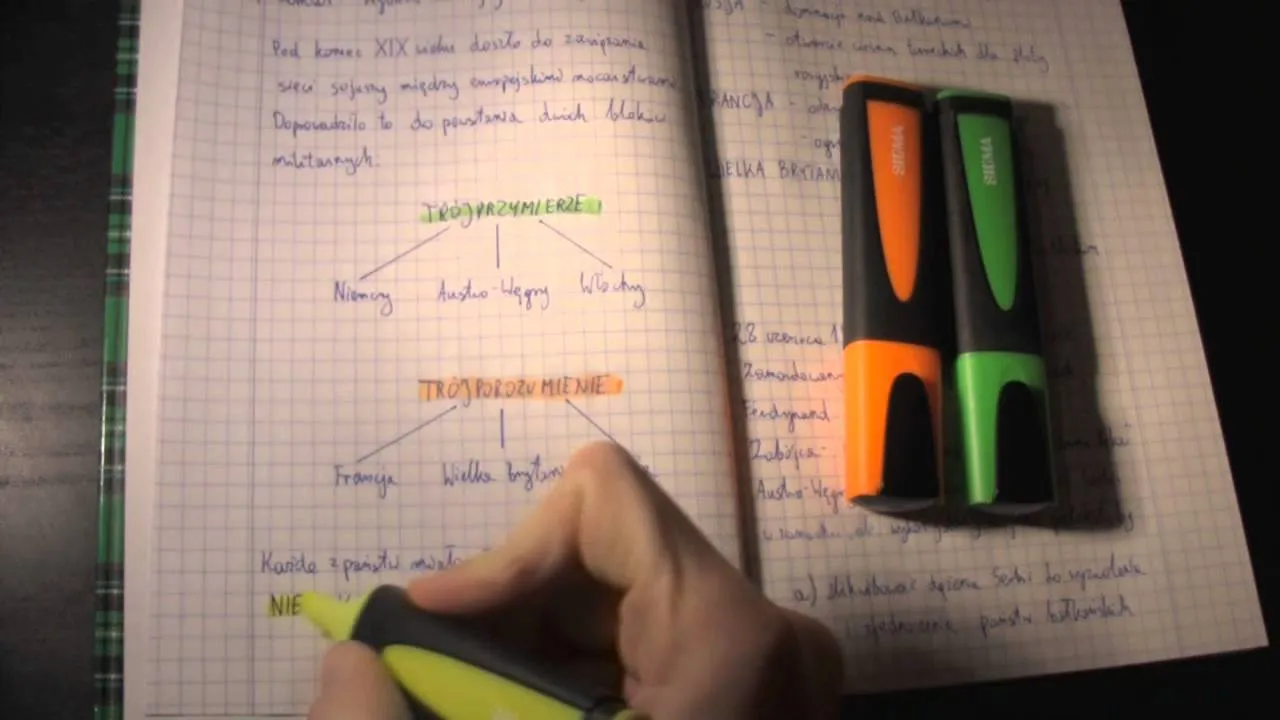 Pod koniec XIX wieku doszło do zawiązania
sieci sojuszy między europejskimi mocarstwami
Doprowadziło to do powstania dwóch bloków
militarnych.
TRÓJPRZYMIERZE
Niemcy Austro-Węgry Włochy
TRÓJPOROZUMIENIE
Francja Wielka Brytania
Każde z państw miało
NIE
- dominacja nad Bałkanami
- otwarcie cieśnin tureckich dla floty
RANCJA -
WIELKA BRYTAN
28 czerwca 1
Zamordowan
Ferdynand
Zabójca -
Austro-Węgr
a) zlikwidować dążenia Serbii do wyzwolenia
i zjednoczenia państw bałkańskich
SIGMA
SIGMA